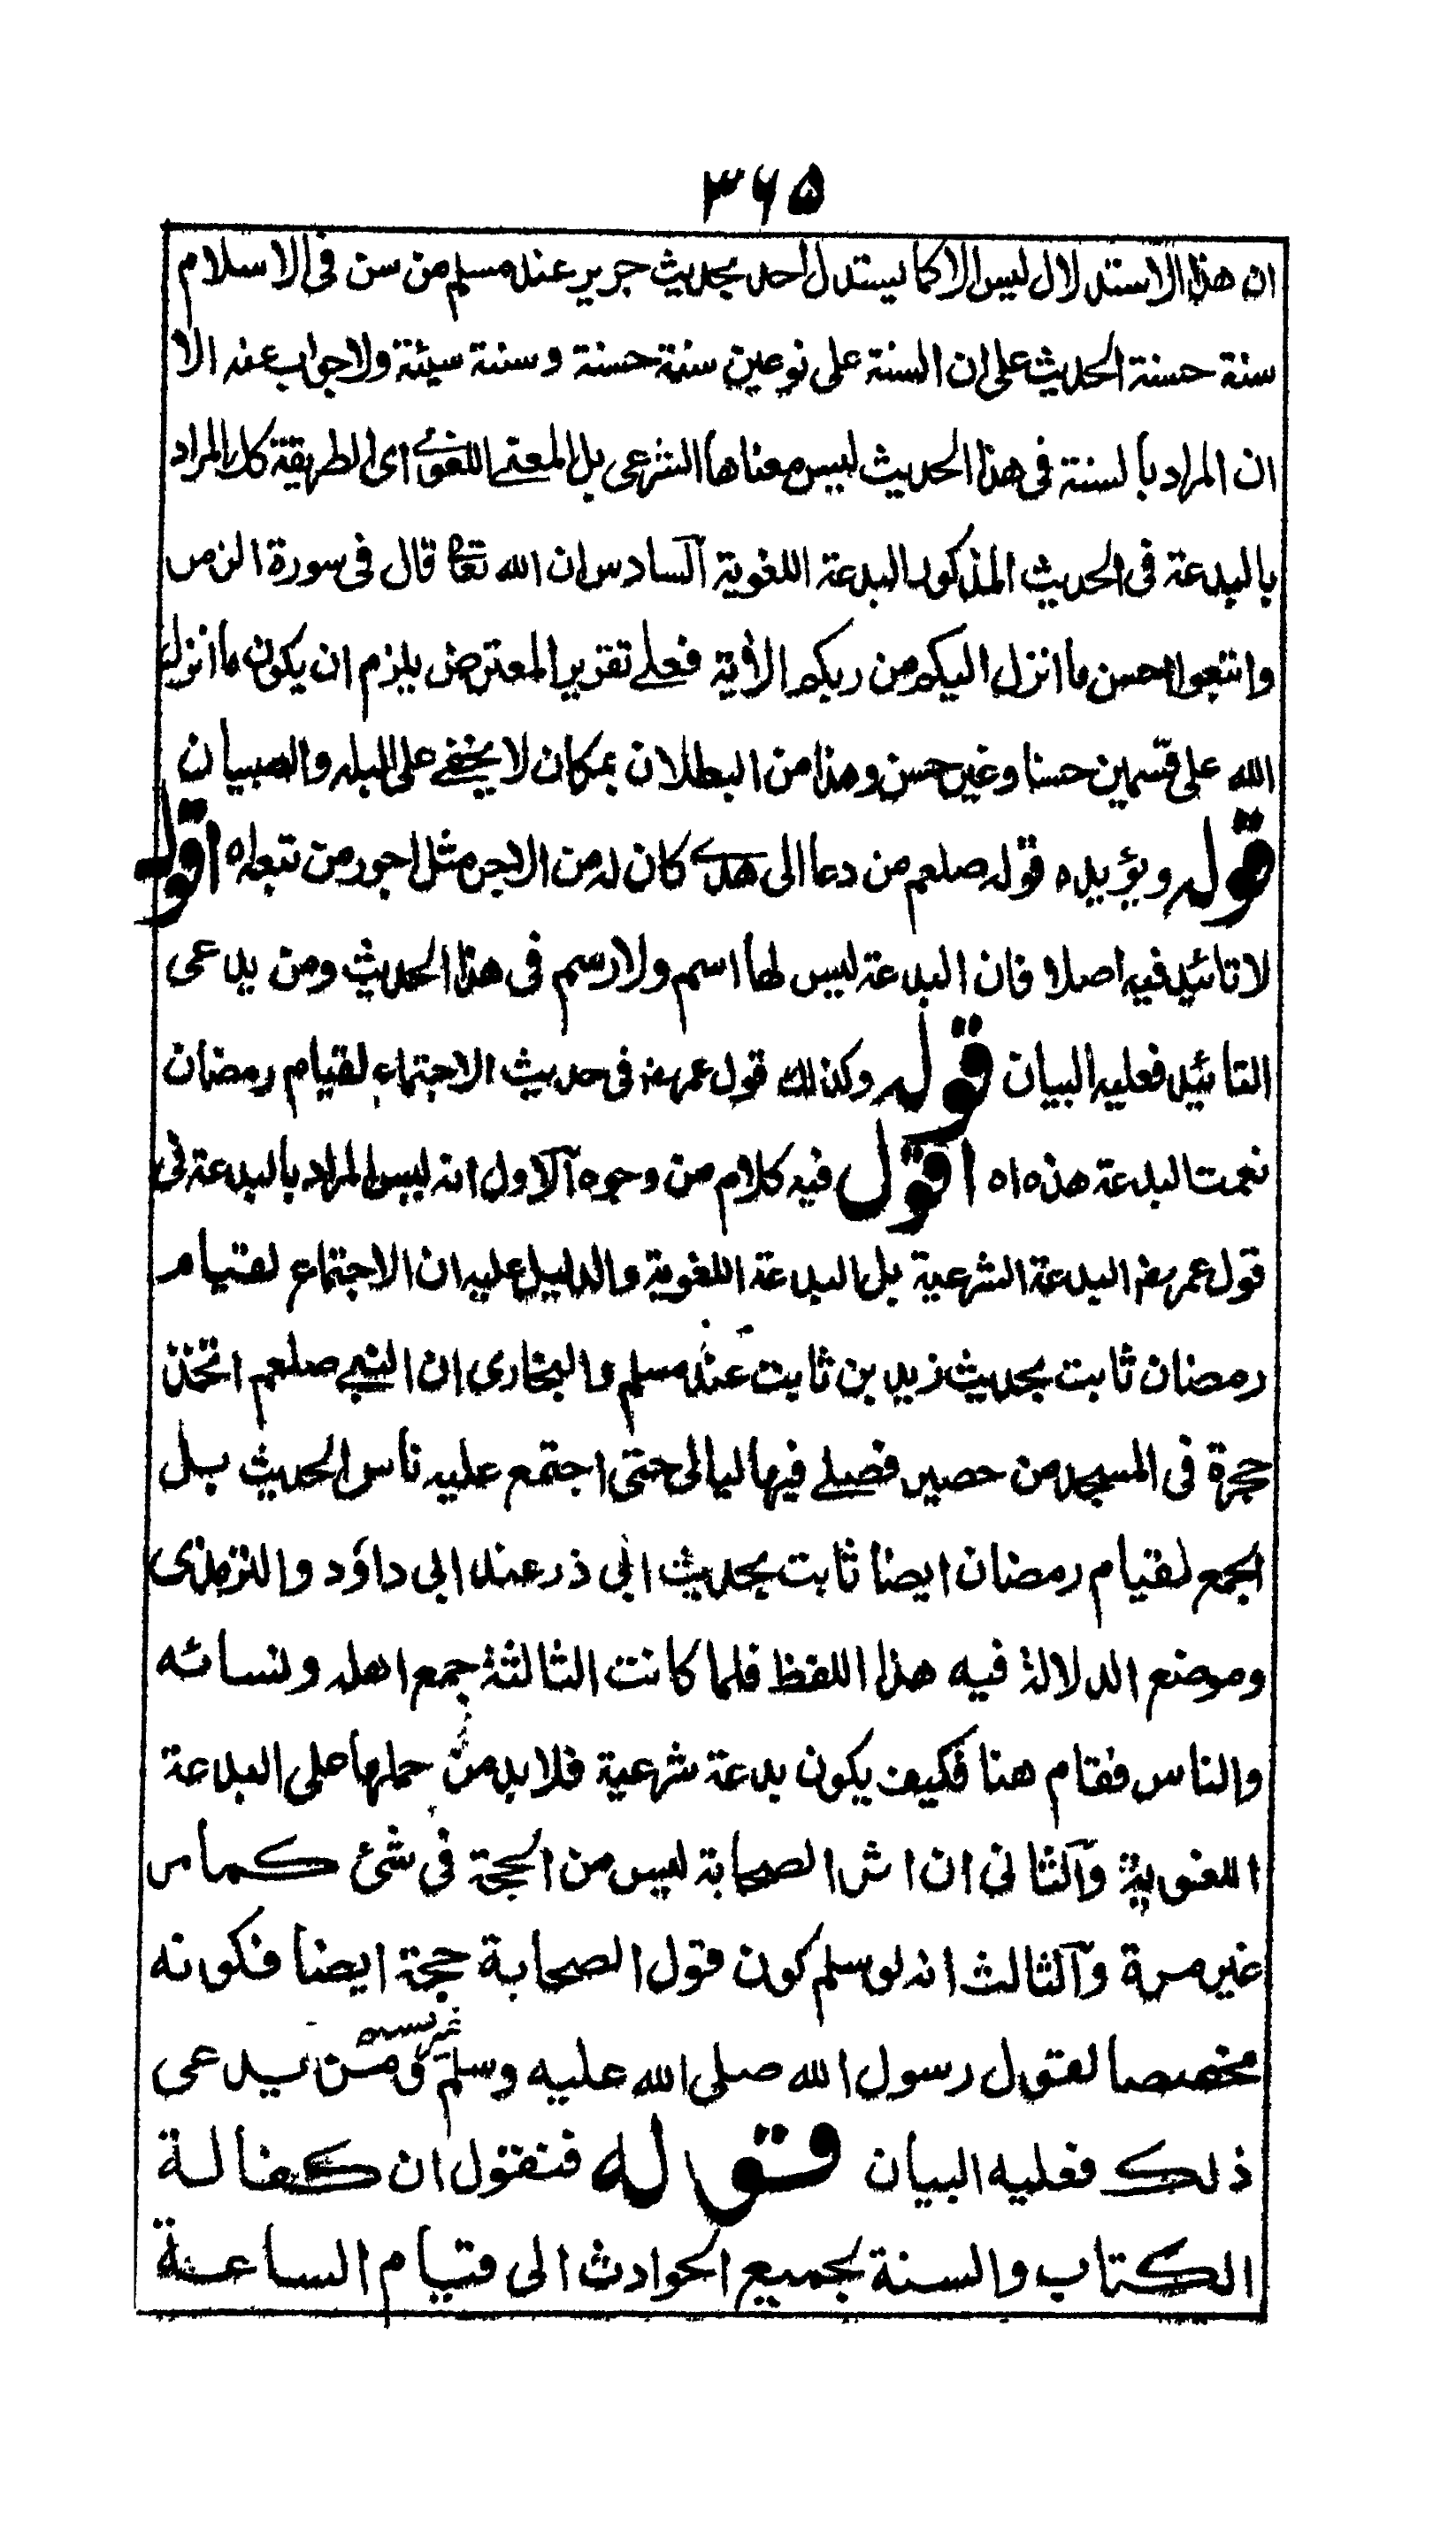 ۳۶۵
ان هذا الاستدلال ليس الا كما يستدل احد بحديث جرير عند مسلم من سن فى الاسلام
سنة حسنة الحديث على ان السنة على نوعين سنة حسنة و سنة سيئة ولا جواب عنه الا
ان المراد بالسنة فى هذا الحديث ليس معناها الشرعى بل المعنے اللغوے اى الطريقة كذا المراد
بالبدعة فى الحديث المذكور البدعة اللغوية آلسادس ان الله تعا قال فى سورة الزمر
واتبعوا احسن ما انزل اليكم من ربكم الأية فعلے تقرير المعترض يلزم ان يكون ما انزل
الله على قسمين حسنا وغير حسن وهذا من البطلان بمكان لا يخفے على البله والصبيان
قوله ويؤيده قوله صلعم من دعا الى هدے كان له من الاجر مثل اجور من تبعه اه اقول
لا تائيد فيه اصلا فان البدعة ليس لها اسم ولا رسم فى هذا الحديث ومن يدعى
التائيد فعليه البيان قوله وكذلك قول عمر رضه فى حديث الاجتماع لقيام رمضان
نعمت البدعة هذه اه اقول فيه كلام من وجوه آلاول انه ليس المراد بالبدعة فى
قول عمر رضه البدعة الشرعية بل البدعة اللغوية والدليل عليه ان الاجتماع لقيام
رمضان ثابت بحديث زيد بن ثابت عند مسلم والبخارى ان النبے صلعم اتخذ
حجرة فى المسجد من حصير فصلے فيها ليالى حتى اجتمع عليه ناس الحديث بل
الجمع لقيام رمضان ايضا ثابت بحديث ابى ذر عند ابى داؤد والترمذى
وموضع الدلالة فيه هذا اللفظ فلما كانت الثالثة جمع اهله ونسائه
والناس فقام هنا فكيف يكون بدعة شرعية فلا بد من حملها على البدعة
اللغوية وآلثانى ان اثر الصحابة ليس من الحجة فى شئ كما مر
غير مرة وآلثالث انه لو سلم كون قول الصحابة حجة ايضا فكونه
مخصصا لقول رسول الله صلى الله عليه وسلم غير مسلم ومن يدعى
ذلك فعليه البيان قوله فنقول ان كفالة
الكتاب والسنة لجميع الحوادث الى قيام الساعة